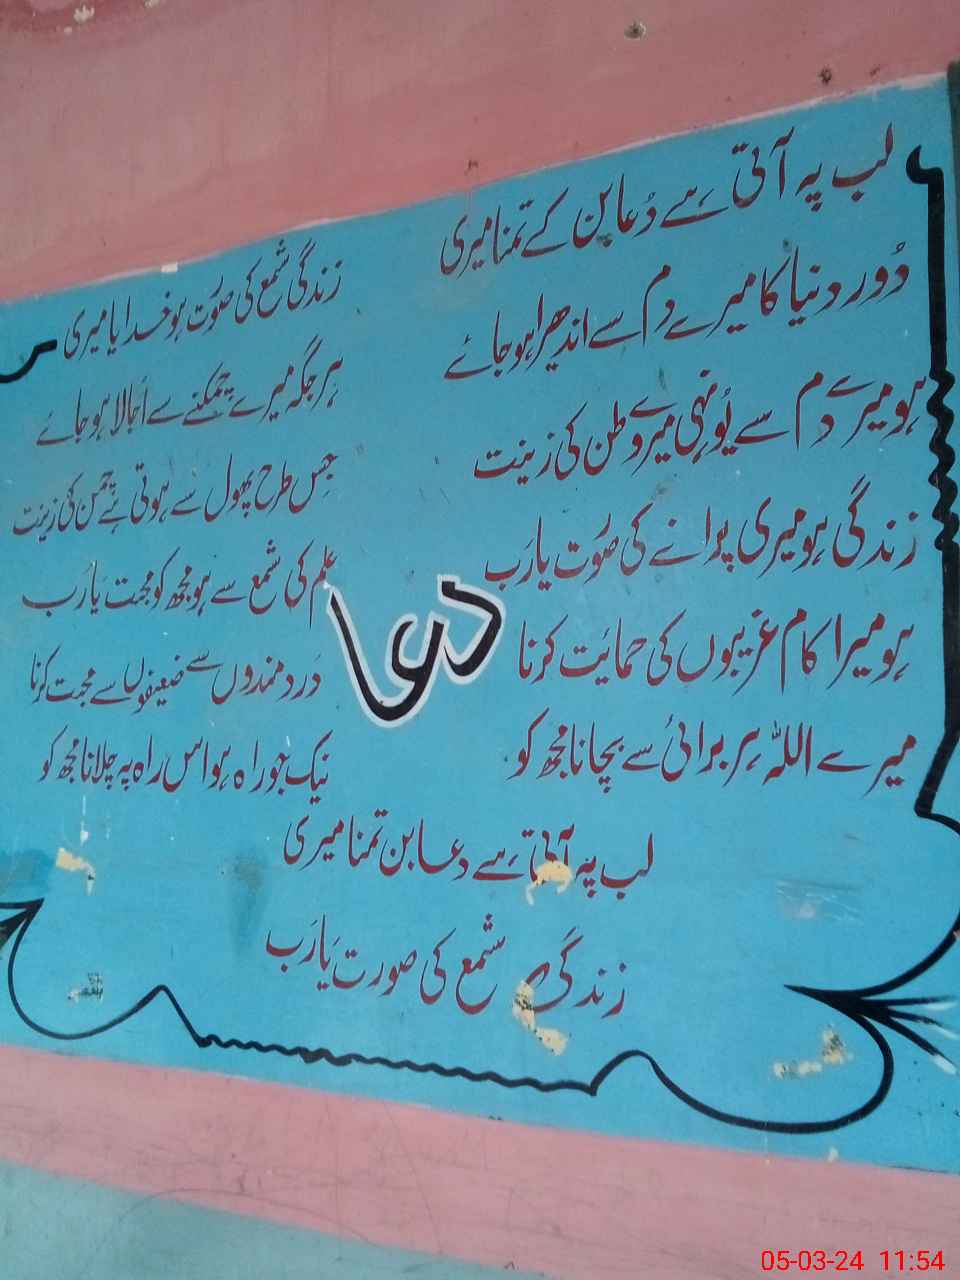 لب پہ آتی ہے دُعا بن کے تمنا میری
زندگی شمع کی صُورت ہو خدایا میری
دُور دنیا کا میرے دم سے اندھیرا ہو جائے
ہر جگہ میرے چمکنے سے اُجالا ہو جائے
ہو میرے دم سے یُونہی میرے وطن کی زینت
جِس طرح پھول سے ہوتی ہے چمن کی زینت
زندگی ہو میری پروانے کی صُورت یا رَب
عِلم کی شمع سے ہو مجھ کو محبت یا رَب
ہو میرا کام غریبوں کی حمائت کرنا
دَرد مندوں سے ضعیفوں سے محبت کرنا
میرے اللہ ہر برائی سے بچانا مجھ کو
نیک جو راہ ہو اس راہ پہ چلانا مجھ کو
دعا
لب پہ آتی ہے دعا بن تمنا میری
زندگی شمع کی صورت یا رَب
05-03-24 11:54